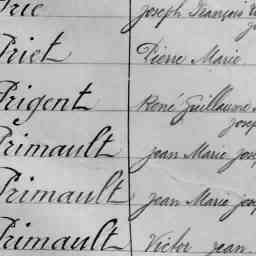 Prie Joseph Français
Priet Pierre Marie
Prigent René Guillaume
Josep
Primault Jean Marie Jose
Primault Jean Marie Jose
Primault Victor Jean